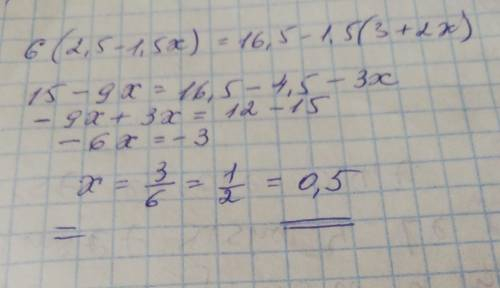 6(2,5-1,5x) = 16,5-1,5(3+2x)
15-9x = 16,5-4,5-3x
-9x+3x = 12-15
-6x = -3
x = 3/6 = 1/2 = 0,5